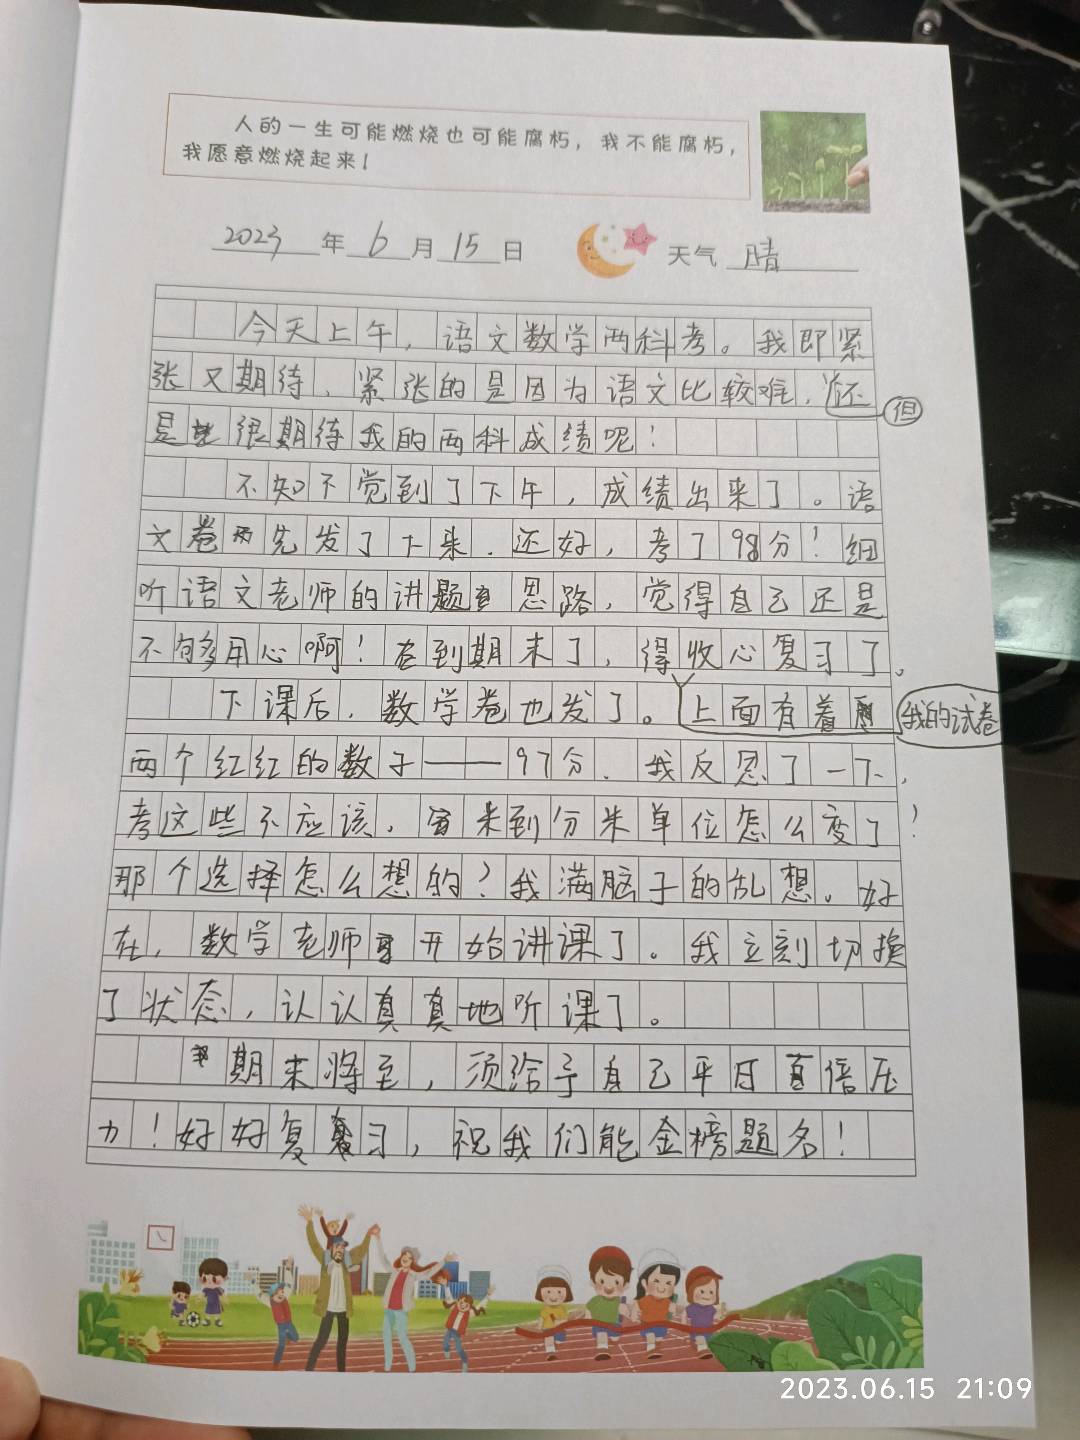 人的一生可能燃烧也可能腐朽，我不能腐朽，
我愿意燃烧起来！
2023年6月15日 天气 晴
今天上午，语文数学两科考。我即紧
张又期待，紧张的是因为语文比较难，还
但
是 很期待我的两科成绩呢！
不知不觉到了下午，成绩出来了。语
文卷 先发了下来．还好，考了98分！细
听语文老师的讲题 思路，觉得自己还是
不够用心啊！在到期末了，得收心复习了。
下课后，数学卷也发了。上面有着
我的试卷
两个红红的数子——97分．我反思了一下，
考这些不应该， 米到分米单位怎么变了！
那个选择怎么想的？我满脑子的乱想。好
在，数学老师 开始讲课了。我立刻切换
了状态，认认真真地听课了。
期末将至，须给予自己平日 倍压
力！好好复 习，祝我们能金榜题名！
2023.06.15 21:09